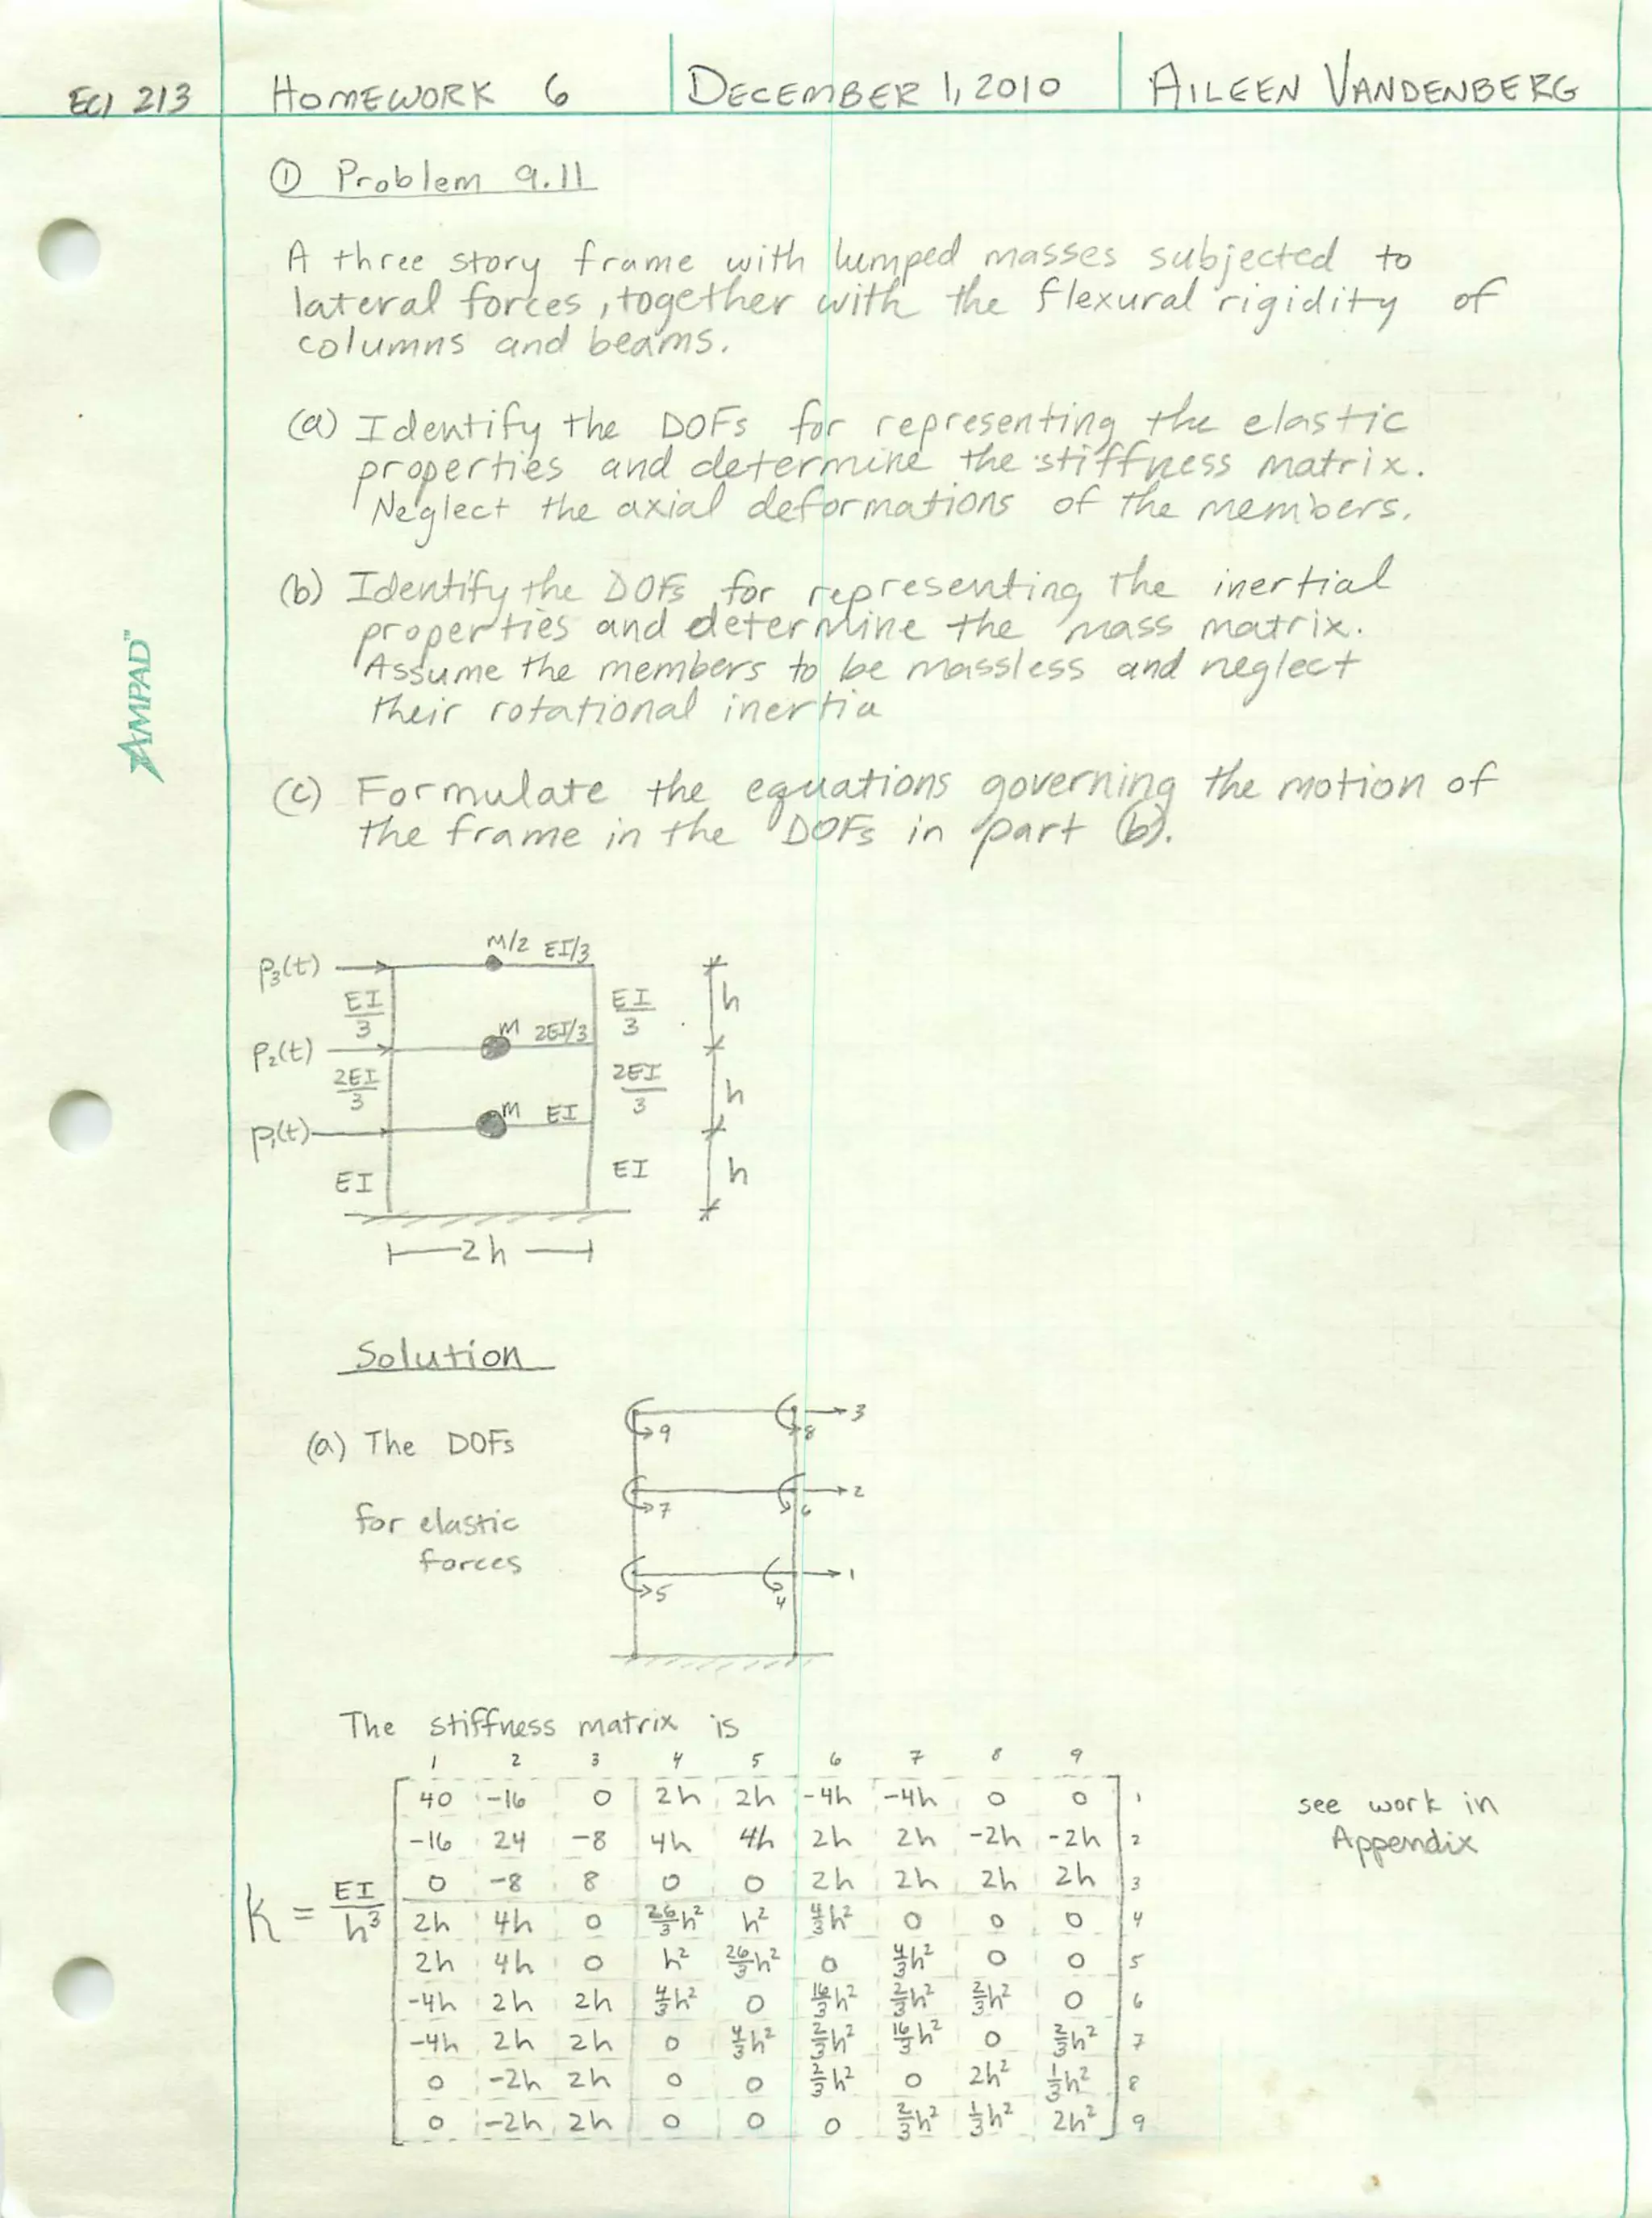 ECI 213 HOMEWORK 6 DECEMBER 1, 2010 AILEEN VANDENBERG
① Problem 9.11
A three story frame with lumped masses subjected to
lateral forces, together with the flexural rigidity of
columns and beams.
(a) Identify the DOFs for representing the elastic
properties and determine the stiffness matrix.
Neglect the axial deformations of the members.
(b) Identify the DOFs for representing the inertial
properties and determine the mass matrix.
Assume the members to be massless and neglect
their rotational inertia
(c) Formulate the equations governing the motion of
the frame in the DOFs in part (b).
AMPAD™
p₃(t) m/2 EI/3
EI/3 EI/3 h
p₂(t) m 2EI/3
2EI/3 2EI/3 h
p₁(t) m EI
EI EI h
2h
Solution
(a) The DOFs
for elastic
forces
9 8 3
7 6 2
5 4 1
The stiffness matrix is
1 2 3 4 5 6 7 8 9
40 -16 0 2h 2h -4h -4h 0 0 1
see work in
Appendix
-16 24 -8 4h 4h 2h 2h -2h -2h 2
0 -8 8 0 0 2h 2h 2h 2h 3
K = EI/h³
2h 4h 0 26/3h² h² 4/3h² 0 0 0 4
2h 4h 0 h² 26/3h² 0 4/3h² 0 0 5
-4h 2h 2h 4/3h² 0 16/3h² 2/3h² 2/3h² 0 6
-4h 2h 2h 0 4/3h² 2/3h² 16/3h² 0 2/3h² 7
0 -2h 2h 0 0 2/3h² 0 2h² 1/3h² 8
0 -2h 2h 0 0 0 2/3h² 1/3h² 2h² 9